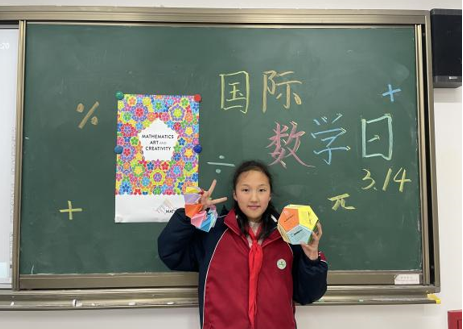 %
MATHEMATICS
ART AND
CREATIVITY
国际
数学日
+
÷
+
π
3.14